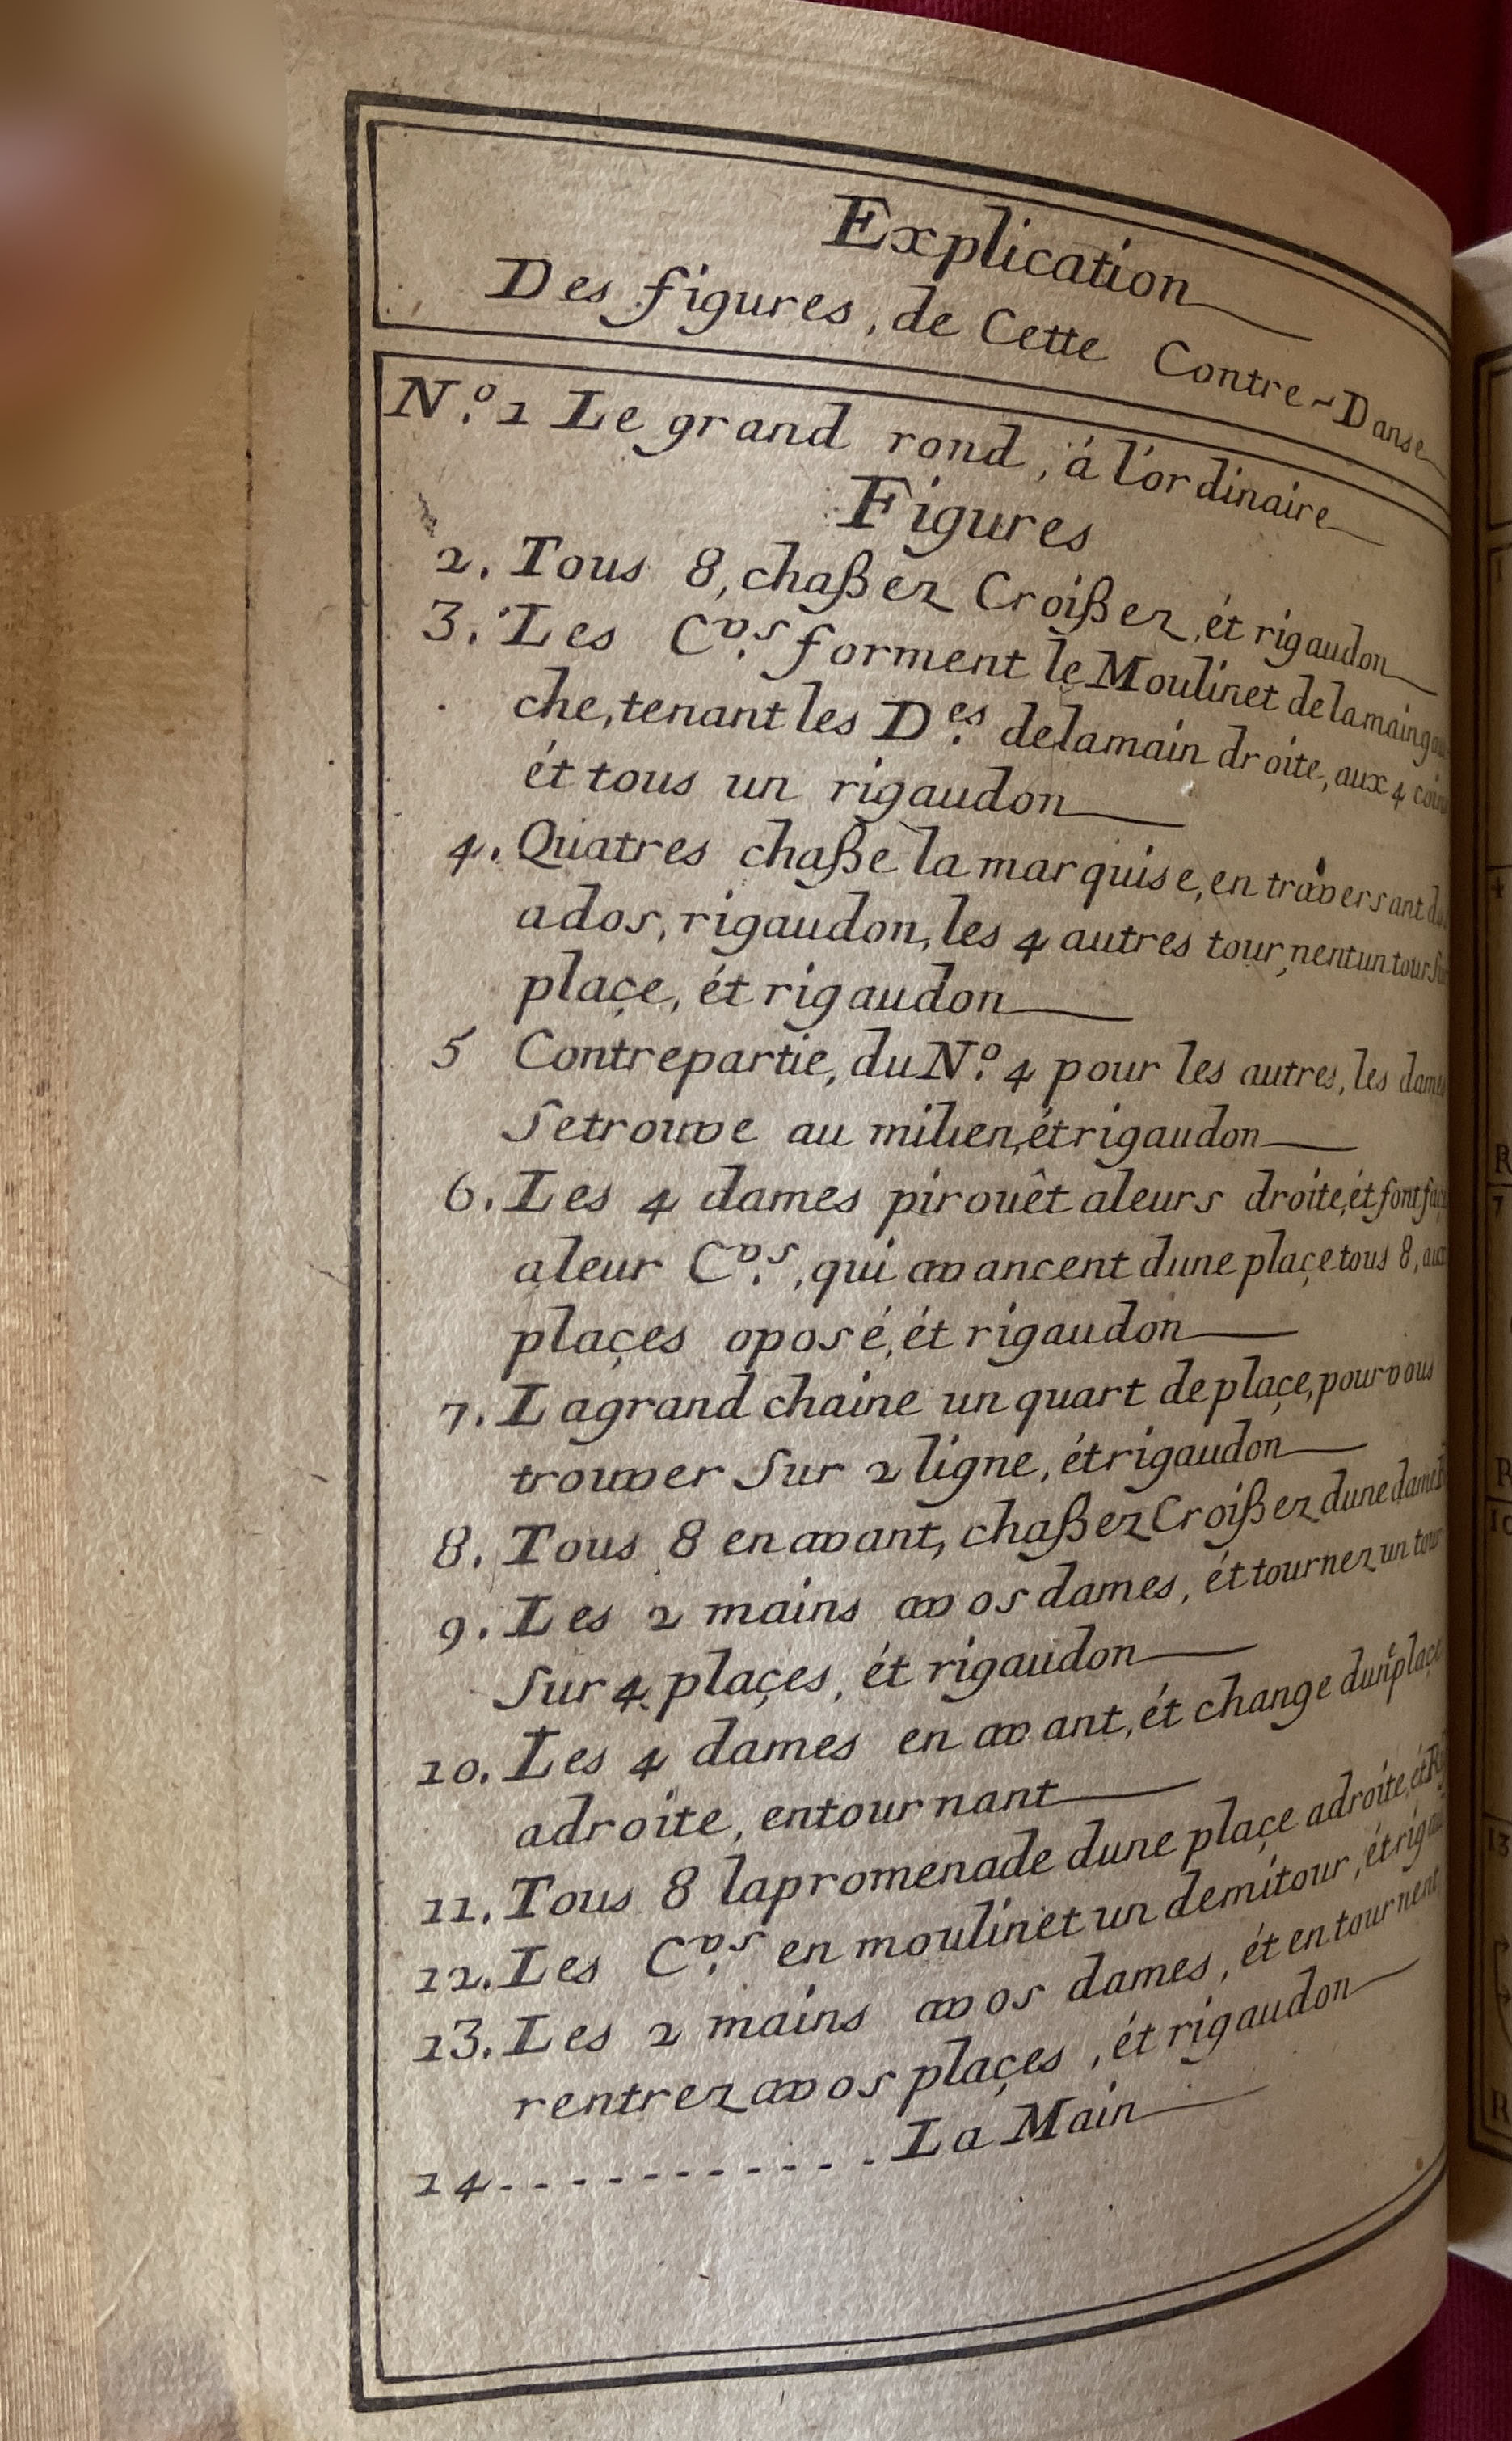 Explication
Des figures, de Cette Contre-Danse
N.º 1 Le grand rond, á l'ordinaire
Figures
2. Tous 8, chaßez Croißez, ét rigaudon
3. Les C.vs forment le Moulinet de la main
che, tenant les D.es de la main droite, aux 4
ét tous un rigaudon
4. Quatres chaße la marquise, en traversant
ados, rigaudon, les 4 autres tournent un tour
plaçe, ét rigaudon
5 Contrepartie, du N.º 4 pour les autres, les
Se trouve au milien, ét rigaudon
6. Les 4 dames pirouêt aleurs droite, ét font
aleur C.vs, qui avancent dune plaçe tous 8,
plaçes oposé, ét rigaudon
7. La grand chaine un quart de plaçe, pour vous
trouver Sur 2 ligne, ét rigaudon
8. Tous 8 en avant, chaßez Croißez dune
9. Les 2 mains avos dames, ét tournez un
Sur 4 plaçes, ét rigaudon
10. Les 4 dames en avant, ét change
adroite, en tournant
11. Tous 8 la promenade dune plaçe adroite, ét
12. Les C.vs en moulinet un demitour,
13. Les 2 mains avos dames, ét en tournent
rentrez avos plaçes, ét rigaudon
14 - - - - - - - - - - - La Main